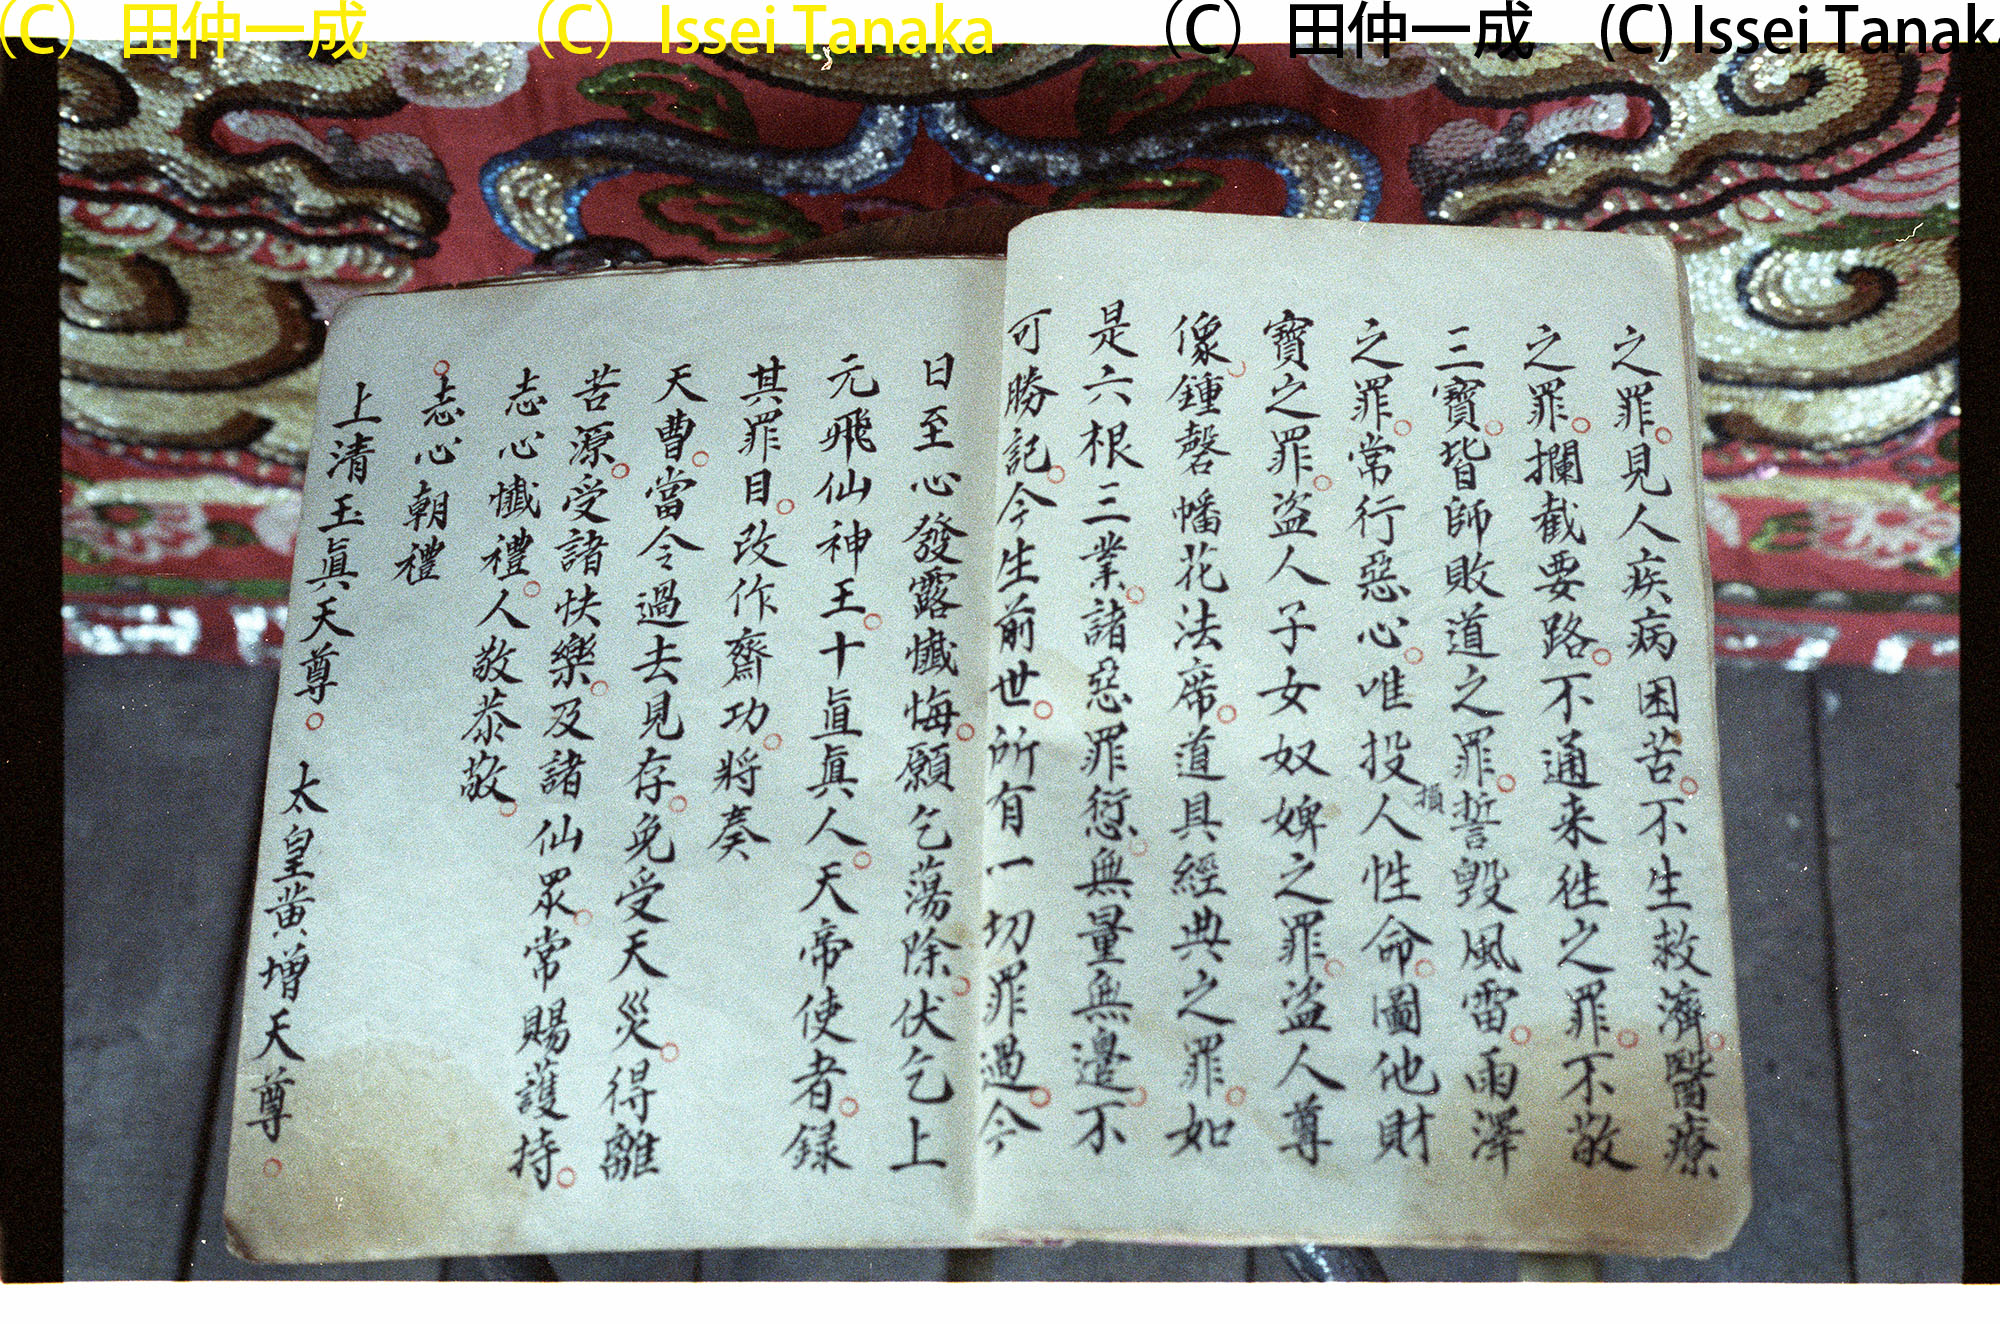 (C) 田仲一成 (C) Issei Tanaka (C) 田仲一成 (C) Issei Tanaka
之罪。見人疾病困苦。不生救濟。醫療
之罪。攔截要路。不通来徃之罪。不敬
三寶。皆師敗道之罪。誓毀風雷。雨澤
之罪。常行惡心。唯投人性命。圖他財
損
寶之罪。盜人子女奴婢之罪。盜人尊
像。鍾磬幡花法席。道具經典之罪。如
是六根三業。諸惡罪愆。無量無邊。不
可勝記。今生前世。所有一切罪過。今
日至心發露懺悔。願乞蕩除。伏乞上
元飛仙神王。十直眞人。天帝使者。録
其罪目。改作齋功。將奏
天曹。當令過去見存。免受天災。得離
苦源。受諸快樂。及諸仙眾。常賜護持。
志心懺禮。人敬恭敬。
。志心朝禮
上清玉眞天尊。 太皇黄增天尊。